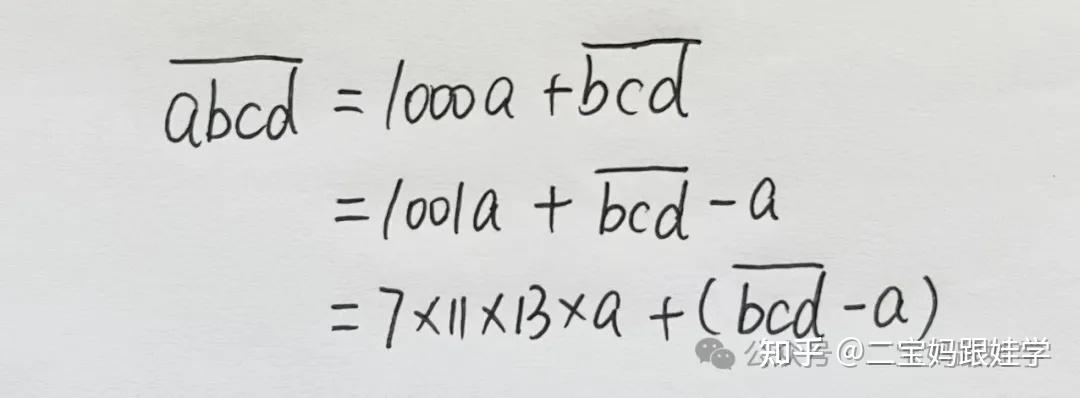 abcd = 1000a + bcd
= 1001a + bcd - a
= 7×11×13×a + (bcd - a)
知乎 @二宝妈跟娃学